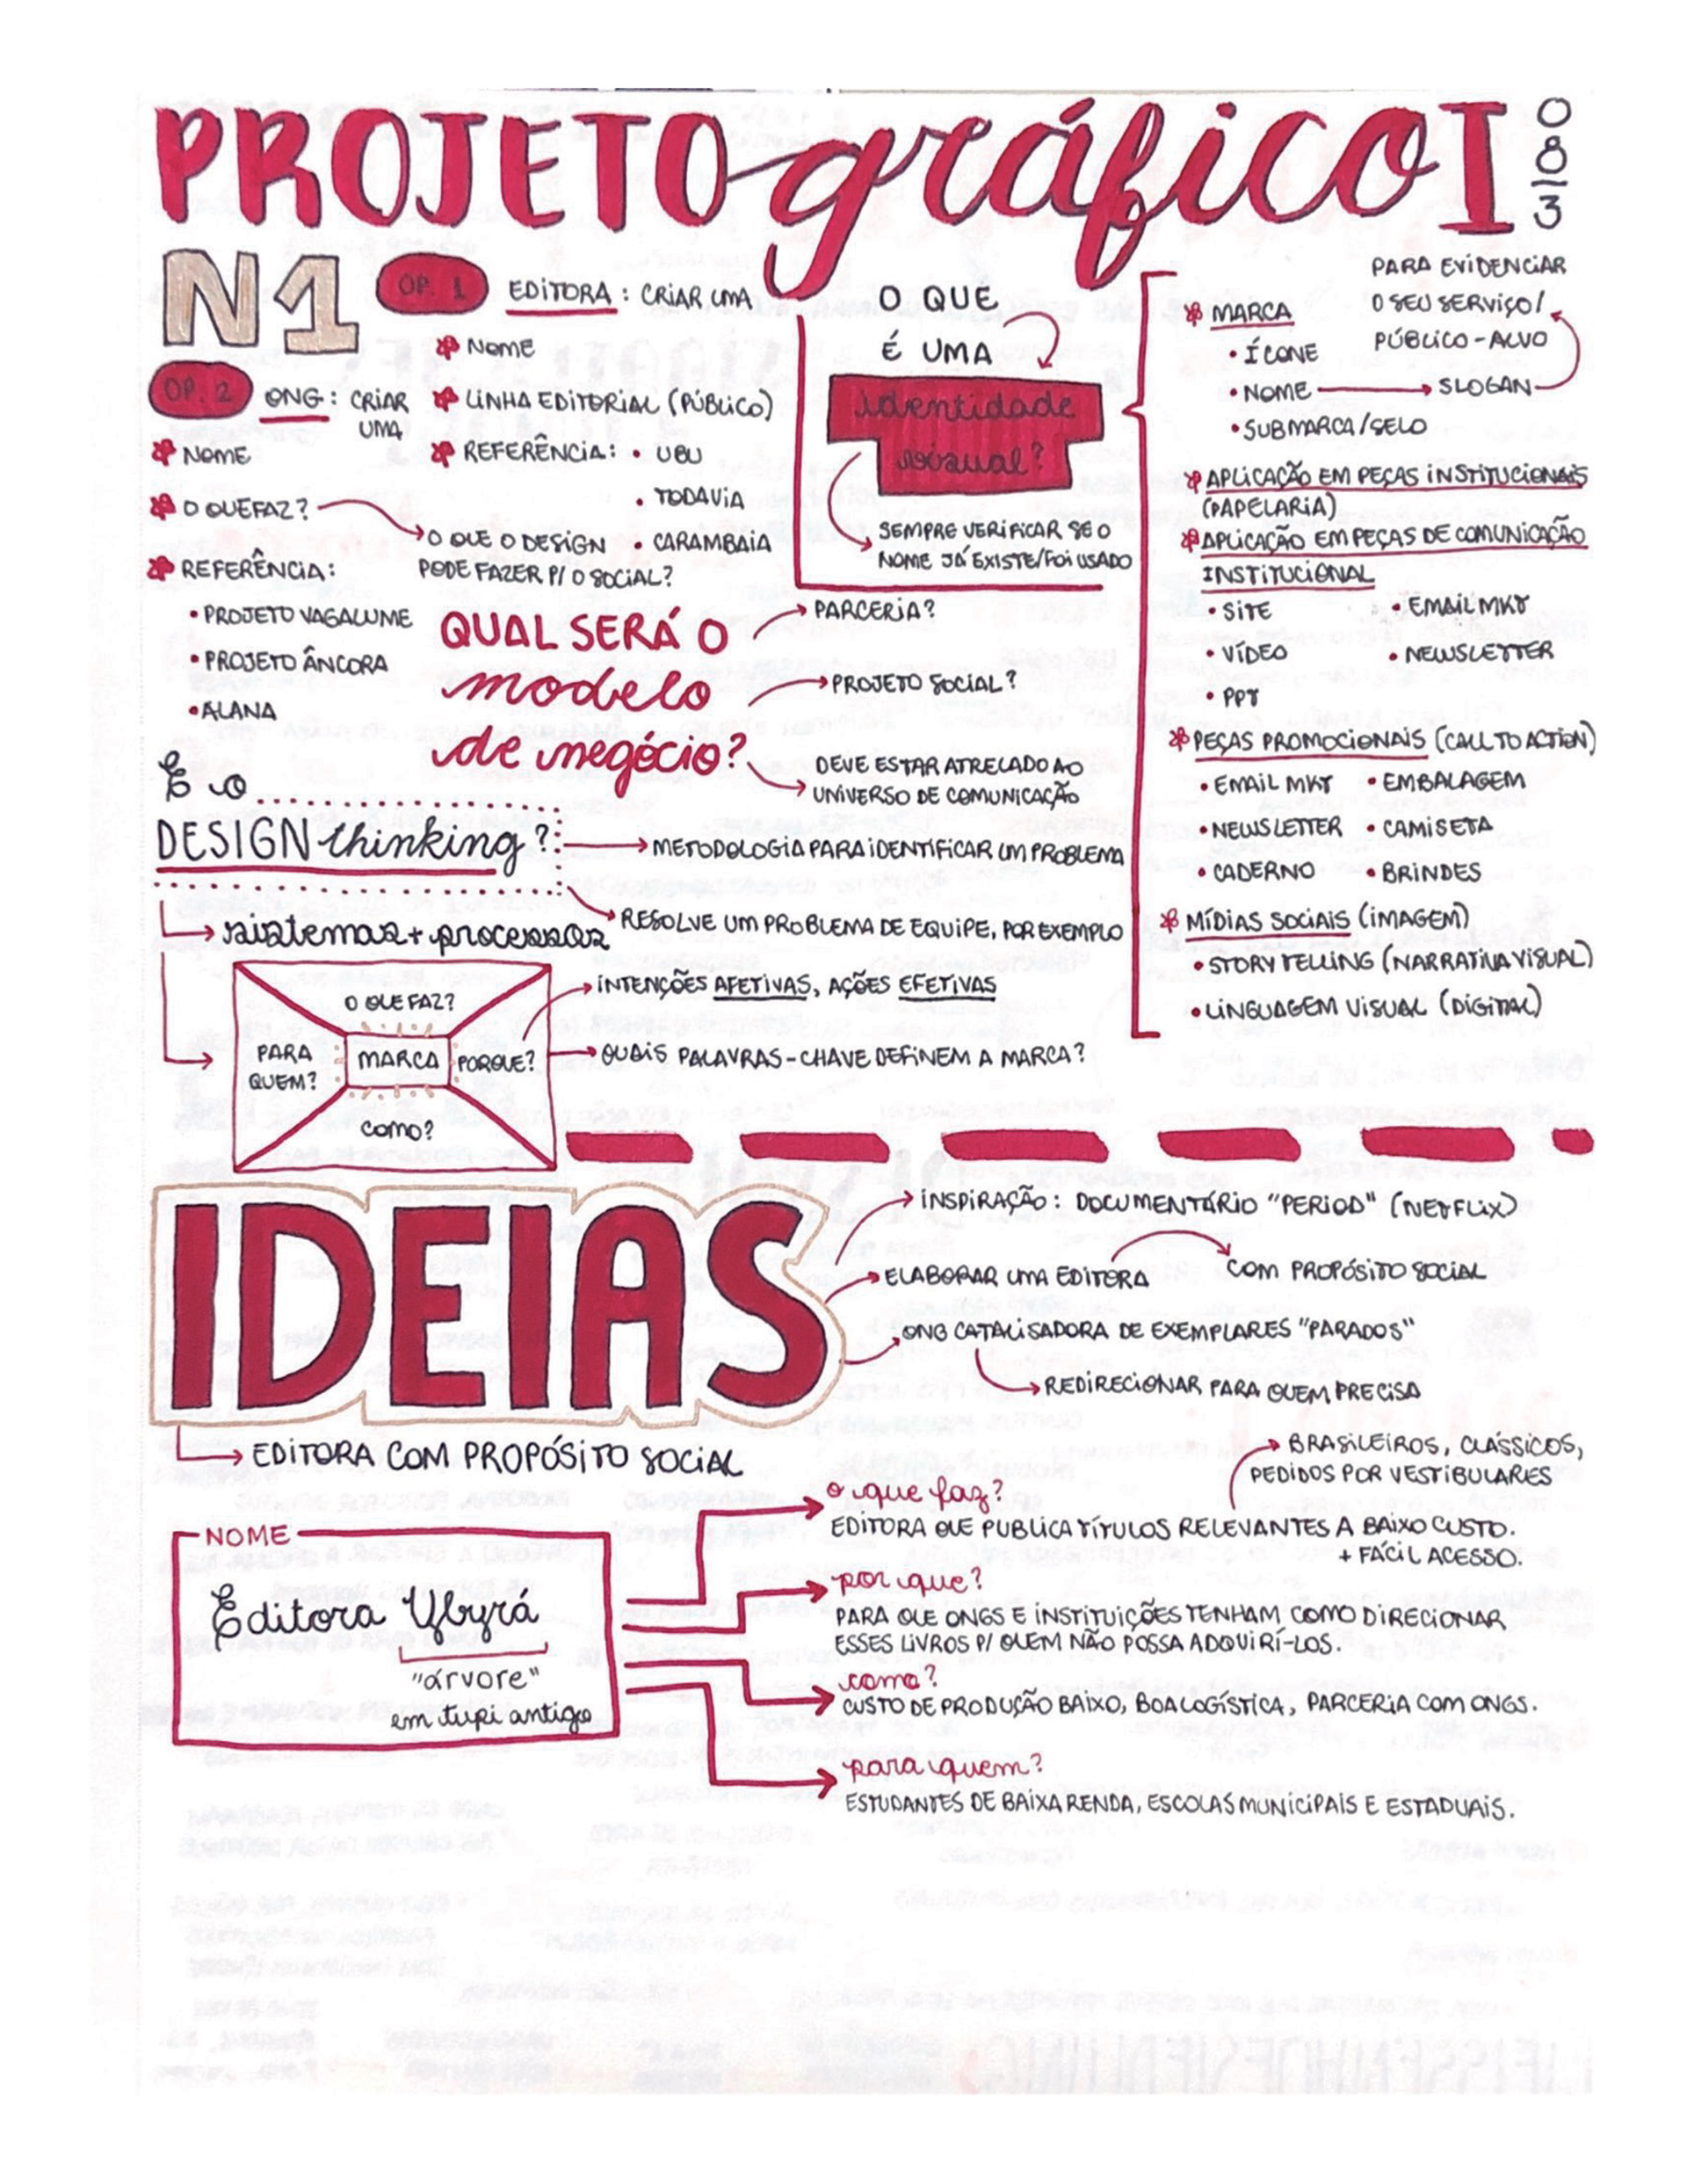 PROJETO gráfico I
08
3
N1
OP. 1 EDITORA: CRIAR UMA
NOME
LINHA EDITORIAL (PÚBLICO)
REFERÊNCIA: • UBU
• TODAVIA
• CARAMBAIA
OP. 2 ONG: CRIAR
UMA
NOME
O QUE FAZ?
O QUE O DESIGN
PODE FAZER P/ O SOCIAL?
REFERÊNCIA:
• PROJETO VAGALUME
• PROJETO ÂNCORA
• ALANA
O QUE
É UMA
identidade
visual?
SEMPRE VERIFICAR SE O
NOME JÁ EXISTE/FOI USADO
MARCA
• ÍCONE
• NOME
SLOGAN
PARA EVIDENCIAR
O SEU SERVIÇO/
PÚBLICO-ALVO
• SUBMARCA/SELO
APLICAÇÃO EM PEÇAS INSTITUCIONAIS
(PAPELARIA)
APLICAÇÃO EM PEÇAS DE COMUNICAÇÃO
INSTITUCIONAL
• SITE
• VÍDEO
• PPT
• EMAIL MKT
• NEWSLETTER
PEÇAS PROMOCIONAIS (CALL TO ACTION)
• EMAIL MKT • EMBALAGEM
• NEWSLETTER • CAMISETA
• CADERNO • BRINDES
MÍDIAS SOCIAIS (IMAGEM)
• STORYTELLING (NARRATIVA VISUAL)
• LINGUAGEM VISUAL (DIGITAL)
QUAL SERÁ O
modelo
de negócio?
PARCERIA?
PROJETO SOCIAL?
DEVE ESTAR ATRELADO AO
UNIVERSO DE COMUNICAÇÃO
E o
DESIGN thinking?
METODOLOGIA PARA IDENTIFICAR UM PROBLEMA
RESOLVE UM PROBLEMA DE EQUIPE, POR EXEMPLO
sistemas + processos
O QUE FAZ?
PARA
QUEM?
MARCA
PORQUE?
COMO?
INTENÇÕES AFETIVAS, AÇÕES EFETIVAS
QUAIS PALAVRAS-CHAVE DEFINEM A MARCA?
IDEIAS
INSPIRAÇÃO: DOCUMENTÁRIO "PERIOD" (NETFLIX)
ELABORAR UMA EDITORA
COM PROPÓSITO SOCIAL
ONG CATALISADORA DE EXEMPLARES "PARADOS"
REDIRECIONAR PARA QUEM PRECISA
EDITORA COM PROPÓSITO SOCIAL
NOME
Editora Ybyrá
"árvore"
em tupi antigo
BRASILEIROS, CLÁSSICOS,
PEDIDOS POR VESTIBULARES
o que faz?
EDITORA QUE PUBLICA TÍTULOS RELEVANTES A BAIXO CUSTO.
+ FÁCIL ACESSO.
por que?
PARA QUE ONGS E INSTITUIÇÕES TENHAM COMO DIRECIONAR
ESSES LIVROS P/ QUEM NÃO POSSA ADQUIRÍ-LOS.
como?
CUSTO DE PRODUÇÃO BAIXO, BOA LOGÍSTICA, PARCERIA COM ONGS.
para quem?
ESTUDANTES DE BAIXA RENDA, ESCOLAS MUNICIPAIS E ESTADUAIS.